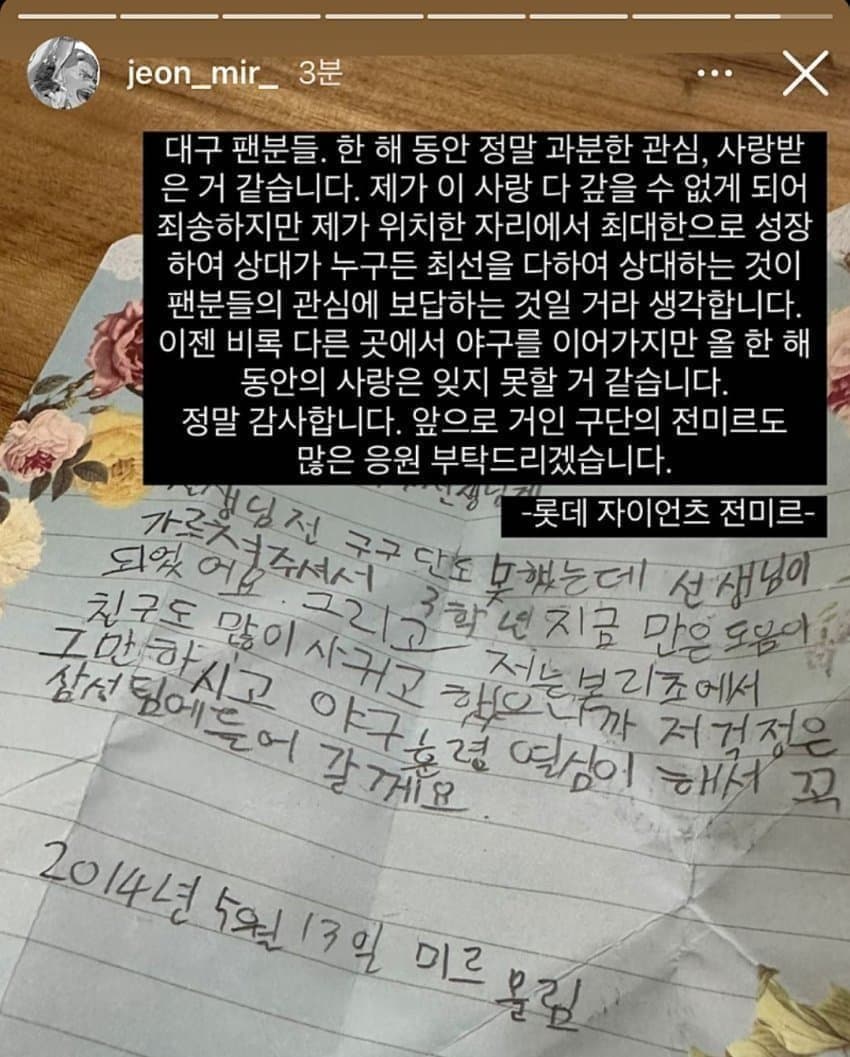 jeon_mir_ 3분
대구 팬분들. 한 해 동안 정말 과분한 관심, 사랑받
은 거 같습니다. 제가 이 사랑 다 갚을 수 없게 되어
죄송하지만 제가 위치한 자리에서 최대한으로 성장
하여 상대가 누구든 최선을 다하여 상대하는 것이
팬분들의 관심에 보답하는 것일 거라 생각합니다.
이젠 비록 다른 곳에서 야구를 이어가지만 올 한 해
동안의 사랑은 잊지 못할 거 같습니다.
정말 감사합니다. 앞으로 거인 구단의 전미르도
많은 응원 부탁드리겠습니다.
-롯데 자이언츠 전미르-
선생님전 구구단도 못했는데 선생님이
가르쳐주셔서 3학년 지금 만은 도움이
되었어요. 그리고 저는 본리초에서
친구도 많이 사귀고 했으니까 저 걱정은
그만하시고 야구 훈령 열심이 해서 꼭
삼성팀에 들어 갈께요.
2014년 5월 13일 미르 올림